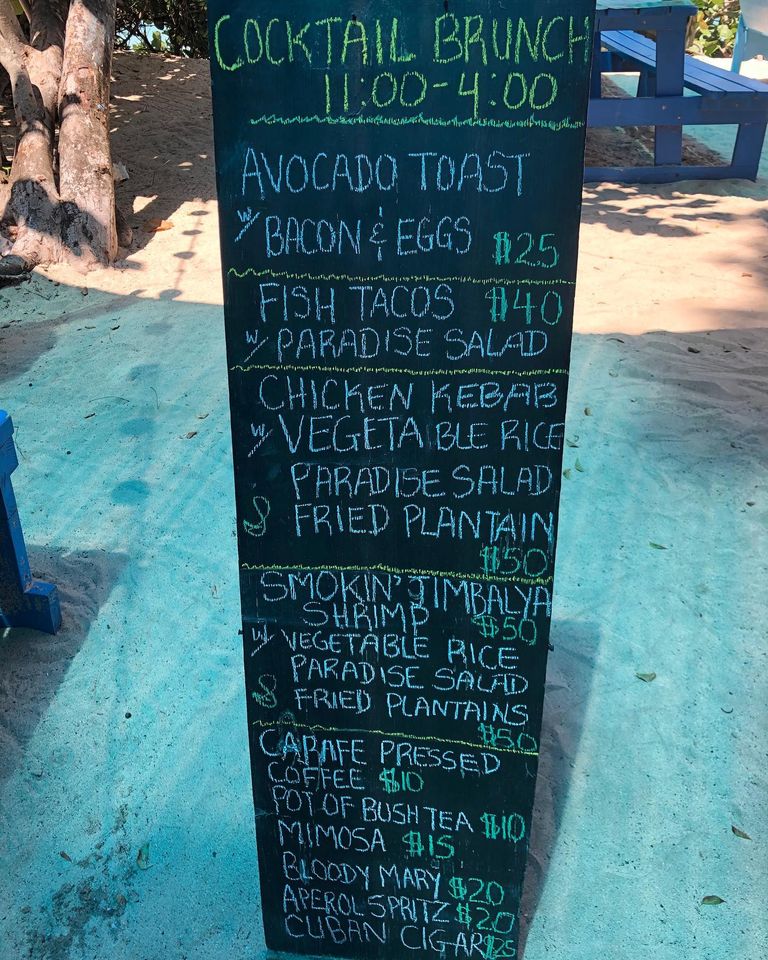 COCKTAIL BRUNCH
11:00-4:00
AVOCADO TOAST
W/ BACON & EGGS $25
FISH TACOS $40
W/ PARADISE SALAD
CHICKEN KEBAB
W/ VEGETABLE RICE
PARADISE SALAD
& FRIED PLANTAIN
$50
SMOKIN' JIMBALYA
SHRIMP $50
W/ VEGETABLE RICE
PARADISE SALAD
& FRIED PLANTAINS
$50
CARAFE PRESSED
COFFEE $10
POT OF BUSH TEA $10
MIMOSA $15
BLOODY MARY $20
APEROL SPRITZ $20
CUBAN CIGAR $25